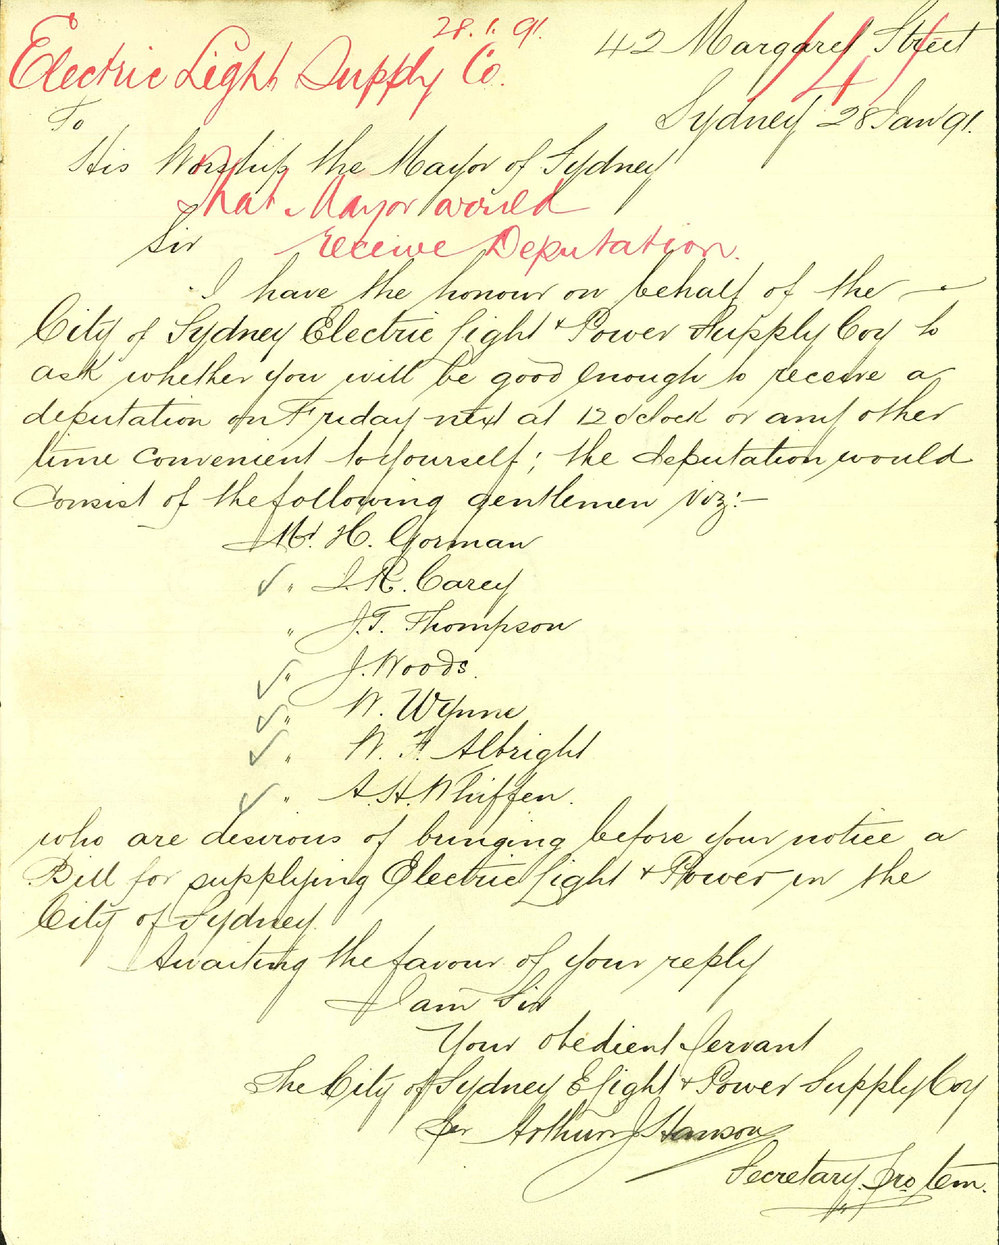 28.1.91.
Electric Light Supply Co.
42 Margaret Street
Sydney 28 Jan 91.
To
His Worship the Mayor of Sydney
that Mayor would
Sir
receive Deputation.
I have the honour on behalf of the
City of Sydney Electric Light & Power Supply Coy to
ask whether you will be good enough to receive a
deputation on Friday next at 12 oclock or any other
time convenient to yourself; the deputation would
consist of the following gentlemen viz:-
Mr. H. Gorman
✓ " J. R. Carey
" J. T. Thompson
✓ " J. Woods.
✓ " W. Wynne
✓ " W. F. Albright
✓ " A. H. Whiffen.
who are desirous of bringing before your notice a
Bill for supplying Electric Light & Power in the
City of Sydney.
Awaiting the favour of your reply
I am Sir
Your obedient Servant
The City of Sydney E Light & Power Supply Coy
Per Arthur J Hanson
Secretary pro tem.